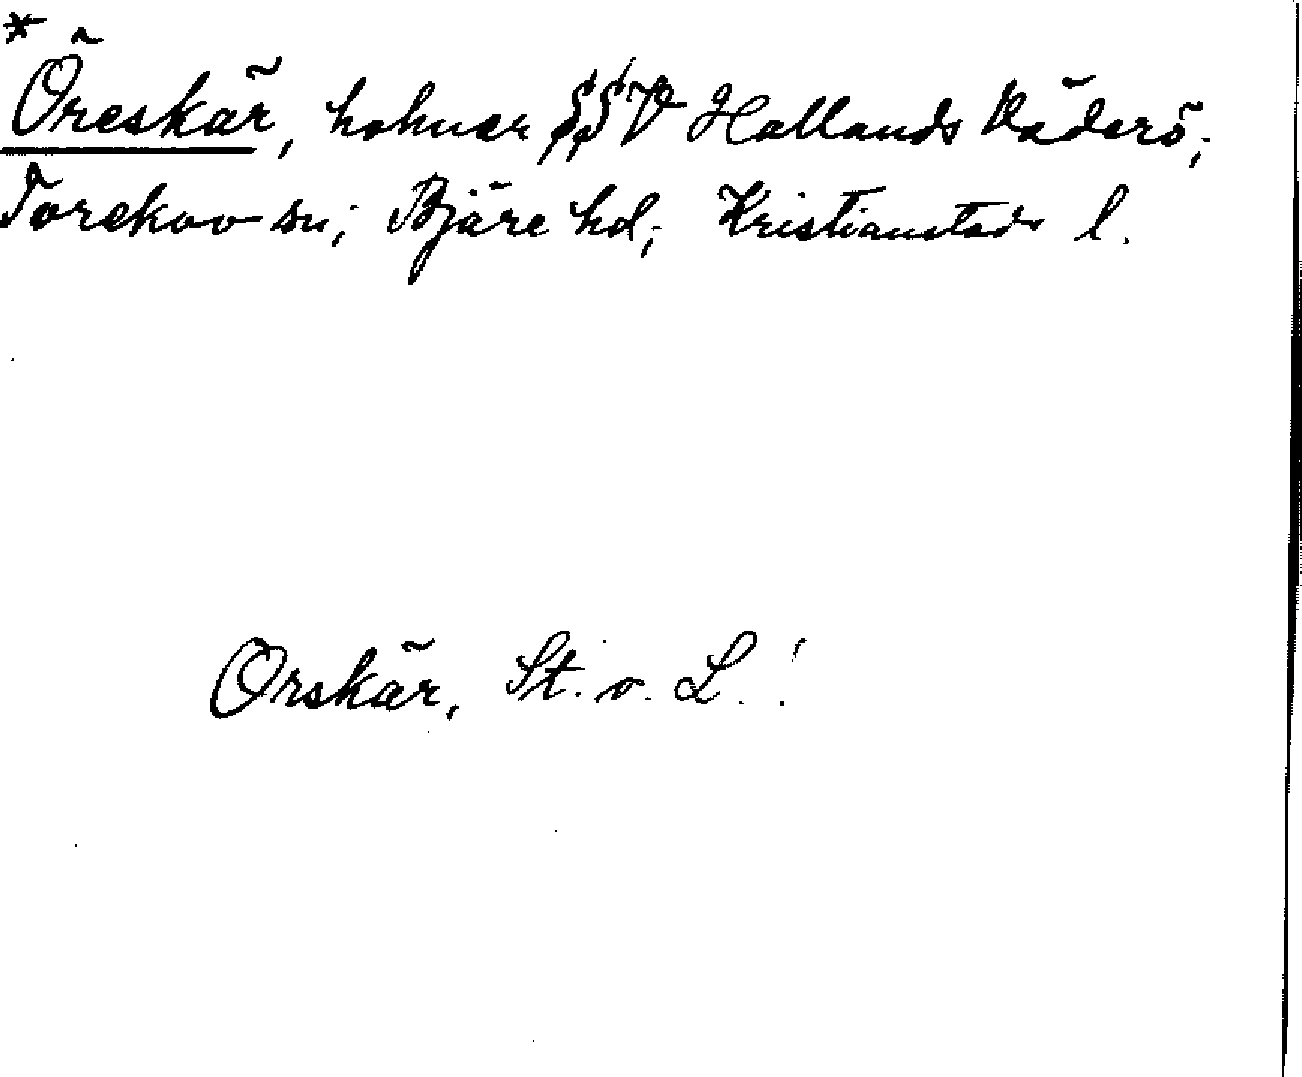 *
Öreskär, holmar SSV Hallands Väderö;
Torekov sn; Bjäre hd; Kristianstads l.
Orskär, St. o. L. !